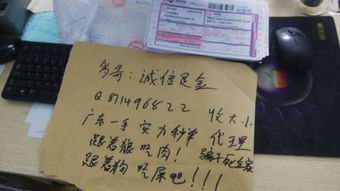 诚信是金
Q 811496822 收大小
广东一手 实力秒单 代理
跟着狼吃肉! 骗子死全家
跟着狗吃屎吧!!!